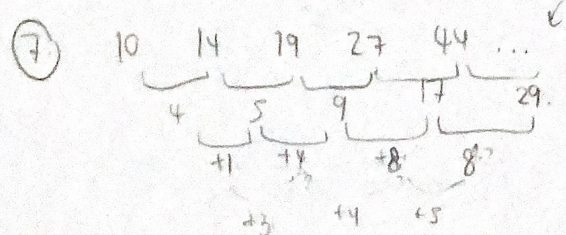 7. 10 14 19 27 44 ...
4 5 9 17 29.
+1 +4 +8 8
+3 +4 +5